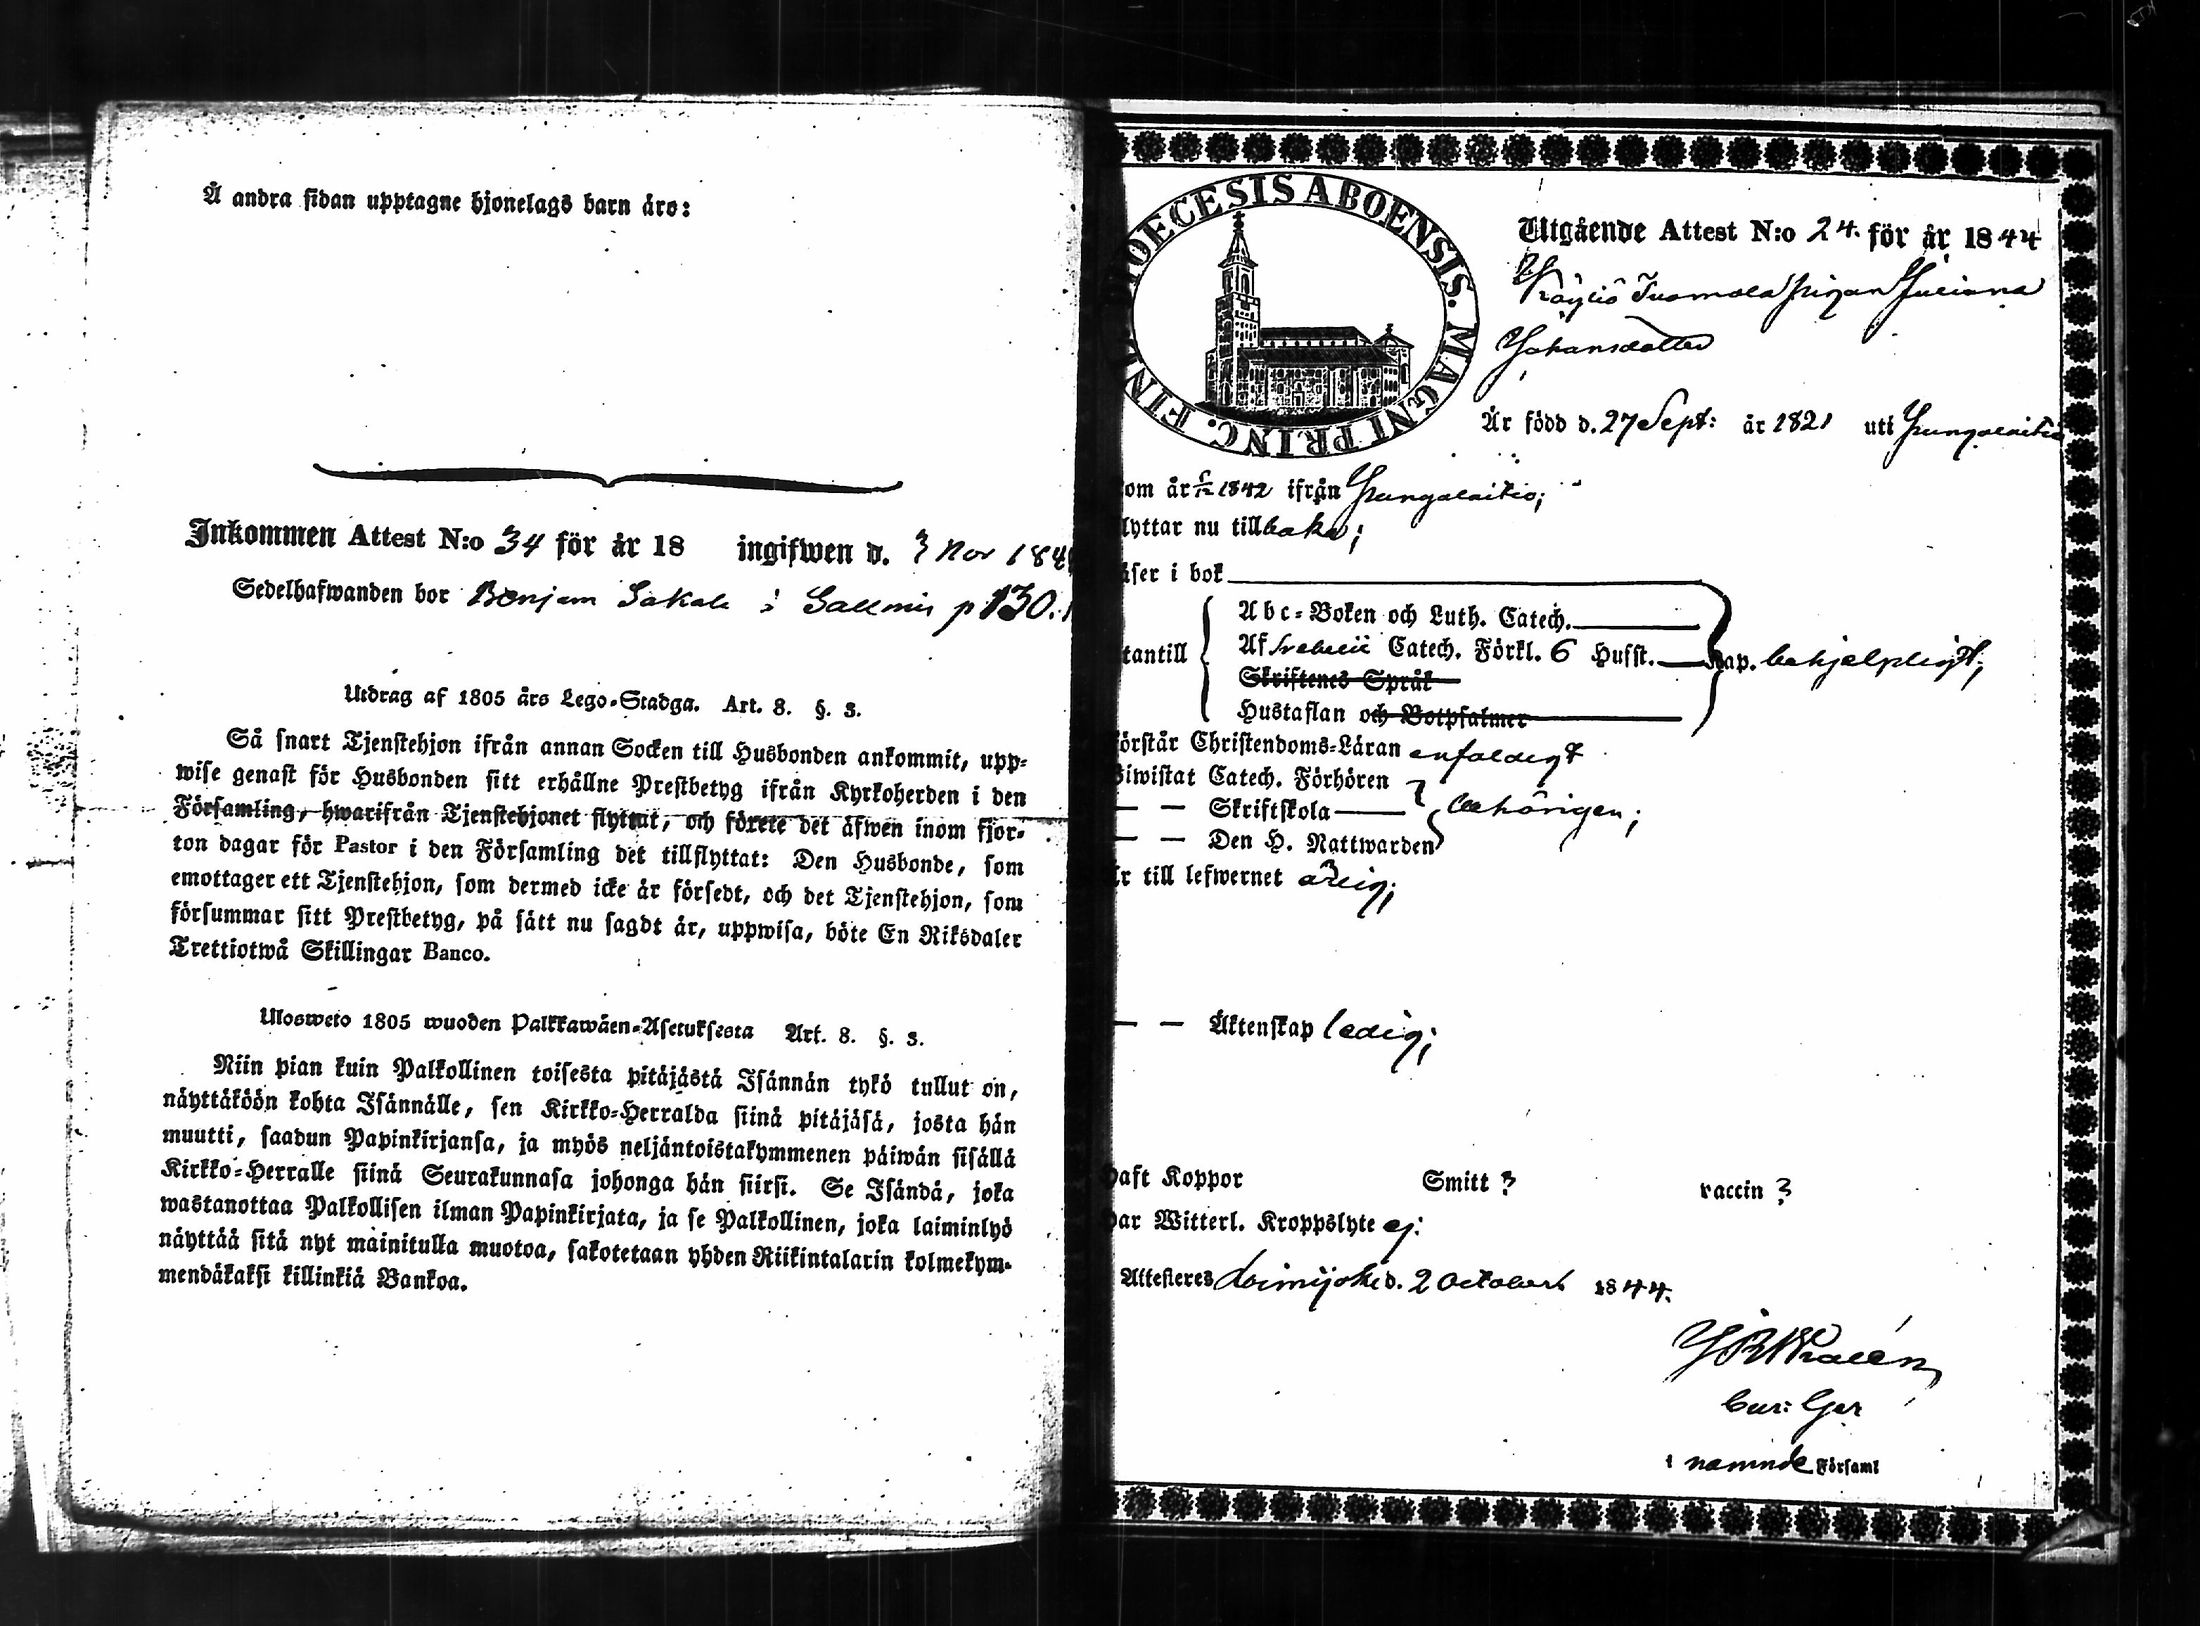 Å andra sidan upptagne hjonelags barn äro:
Inkommen Attest N:o 34 för år 18 ingifwen d. 3 Nov 184
Sedelhafwanden bor Benjam Sakala i p 130.
Utdrag af 1805 års Lego-Stadga. Art. 8. §. 3.
Så snart Tjenstehjon ifrån annan Socken till Husbonden ankommit, upp-
wise genast för Husbonden sitt erhållne Prestbetyg ifrån Kyrkoherden i den
Församling, hwarifrån Tjenstehjonet flyttat, och förete det äfwen inom fjor-
ton dagar för Pastor i den Församling det tillflyttat: Den Husbonde, som
emottager ett Tjenstehjon, som dermed icke är försedt, och det Tjenstehjon, som
försummar sitt Prestbetyg, på sätt nu sagdt är, uppwisa, böte En Riksdaler
Trettiotwå Skillingar Banco.
Ulosweto 1805 wuoden Palkkawäen-Asetuksesta Art. 8. §. 3.
Niin pian kuin Palkollinen toisesta pitäjästä Isännän tykö tullut on,
näyttäköön kohta Isännälle, sen Kirkko-Herralda siinä pitäjäsä, josta hän
muutti, saadun Papinkirjansa, ja myös neljäntoistakymmenen päiwän sisällä
Kirkko-Herralle siinä Seurakunnasa johonga hän siirsi. Se Isändä, joka
wastanottaa Palkollisen ilman Papinkirjata, ja se Palkollinen, joka laiminlyö
näyttää sitä nyt mainitulla muotoa, sakotetaan yhden Riikintalarin kolmekym-
mendäkaksi killinkiä Bankoa.
DIOECESIS ABOENSIS. MAGNI PRINC. FINL
Utgående Attest N:o 24. för år 1844
Wräyliö Tuomola Pigan Juliana
Johansdotter
Är född d. 27 Sept: år 1821 uti Pungalaitio
om år 1842 ifrån Pungalaitio;
lyttar nu tillbaka;
äser i bok
Abc-Boken och Luth. Catech.
tantill Af Svebelii Catech. Förkl. 6 Husst. Kap. behjelpligt;
Skriftenes Språk
Hustaflan och Botpsalmer
örstår Christendoms-Läran enfaldigt
iwistat Catech. Förhören
— — Skriftskola behörigen;
— — Den H. Nattwarden
r till lefwernet ärlig;
— — Äktenskap ledig;
aft Koppor Smitt? vaccin?
ar Witterl. Kroppslyte ej:
Attesteres Loimijoki d. 2 October 1844.
i nämnde Församl